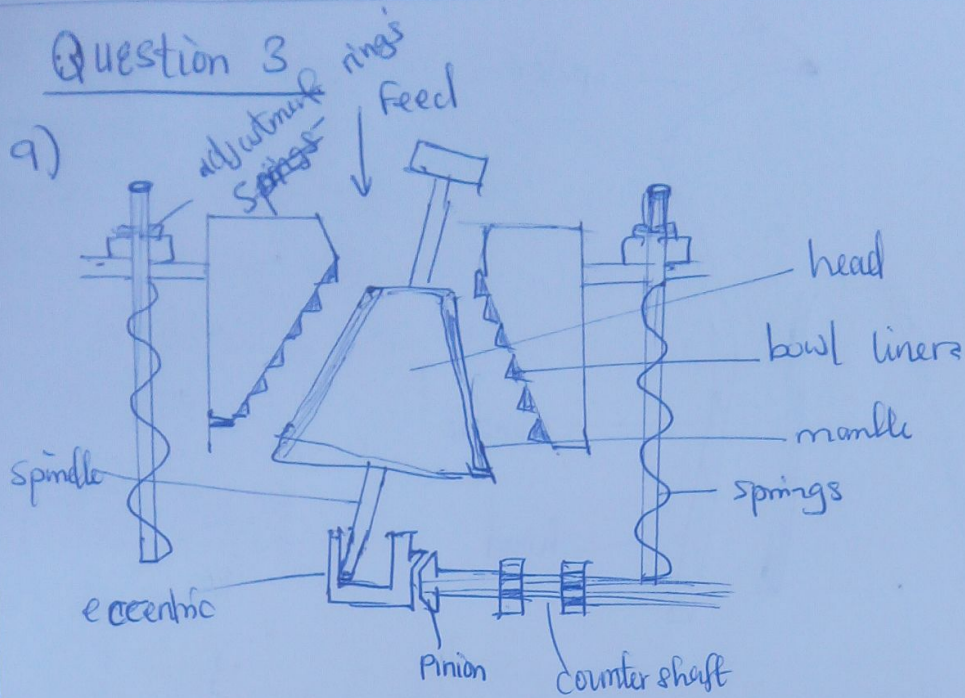 Question 3
a)
adjustment rings
Springs
Feed
head
bowl liners
mantle
springs
spindle
eccentric
Pinion
counter shaft